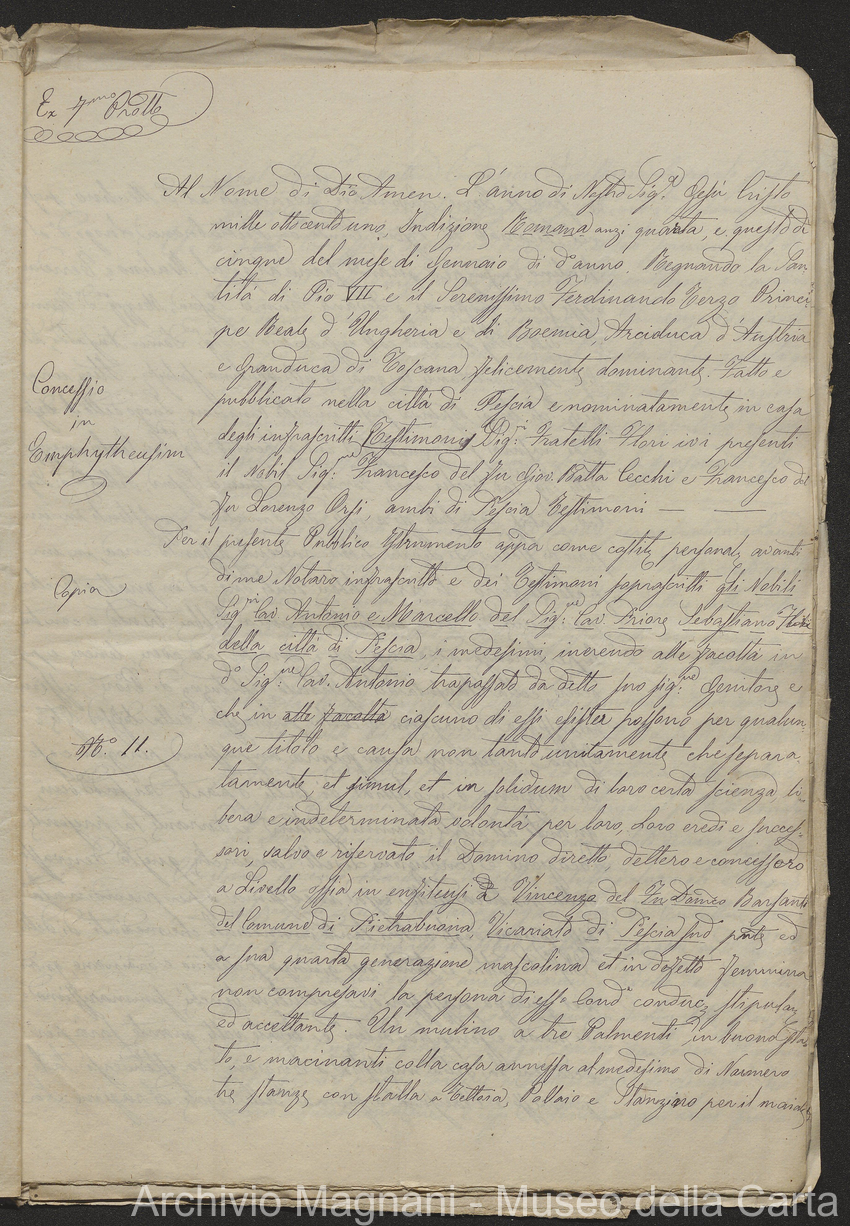 Ex 7mo Protto
Al Nome di Dio Amen. L'anno di Nostro Sigre Gesù Cristo
mille ottocento uno, Indizione Romana anzi quarta, e questo dì
cinque del mese di Gennaio di do anno. Regnando la San
tità di Pio VII e il Serenissimo Ferdinando Terzo Princi-
pe Reale d'Ungheria e di Boemia, Arciduca d'Austria
e Granduca di Toscana felicemente dominante. Fatto e
pubblicato nella città di Pescia e nominatamente in casa
degli infrascritti Testimonij Sigri Fratelli Flori ivi presenti
il Nobil Sigre Francesco del fu Giov. Batta Cecchi e Francesco del
fu Lorenzo Orsi, ambi di Pescia Testimoni
Concessio
in
Emphytheusim
Per il presente Pubblico Istrumento appa come costite personalte avanti
di me Notaro infrascritto e dei Testimoni soprascritti gli Nobili
Copia
Sigri Cavi Antonio e Marcello del Sigre Cav. Priore Sebastiano Flori
della città di Pescia, i medesimi, inerendo alle facoltà in
do Sigre Cav. Antonio trapassato da detto suo sigre Genitore e
che in alle facoltà ciascuno di essi possono per qualun-
que titolo e causa non tanto unitamente, che separa-
No 11.
tamente, et simul, et in solidum di loro certa scienza li-
bera e indeterminata volontà per loro, Loro eredi e succes-
sori, salvo e riservato il Dominio diretto, dettero e concessero
a Livello ossia in enfiteusi a Vincenzo del Fu Domco Barsanti
del Comune di Pietrabuona, Vicariato di Pescia pnte ed
a sua quarta generazione mascolina et in difetto femmina
non compresavi la persona di esso Condre conduce stipulane
ed accettante. Un mulino a tre Palmenti in buono sta-
to, e macinanti colla casa annessa al medesimo di Numero
tre stanze con stalla a Tettoia, Pollaio e Stanzino per il maiale
Archivio Magnani - Museo della Carta